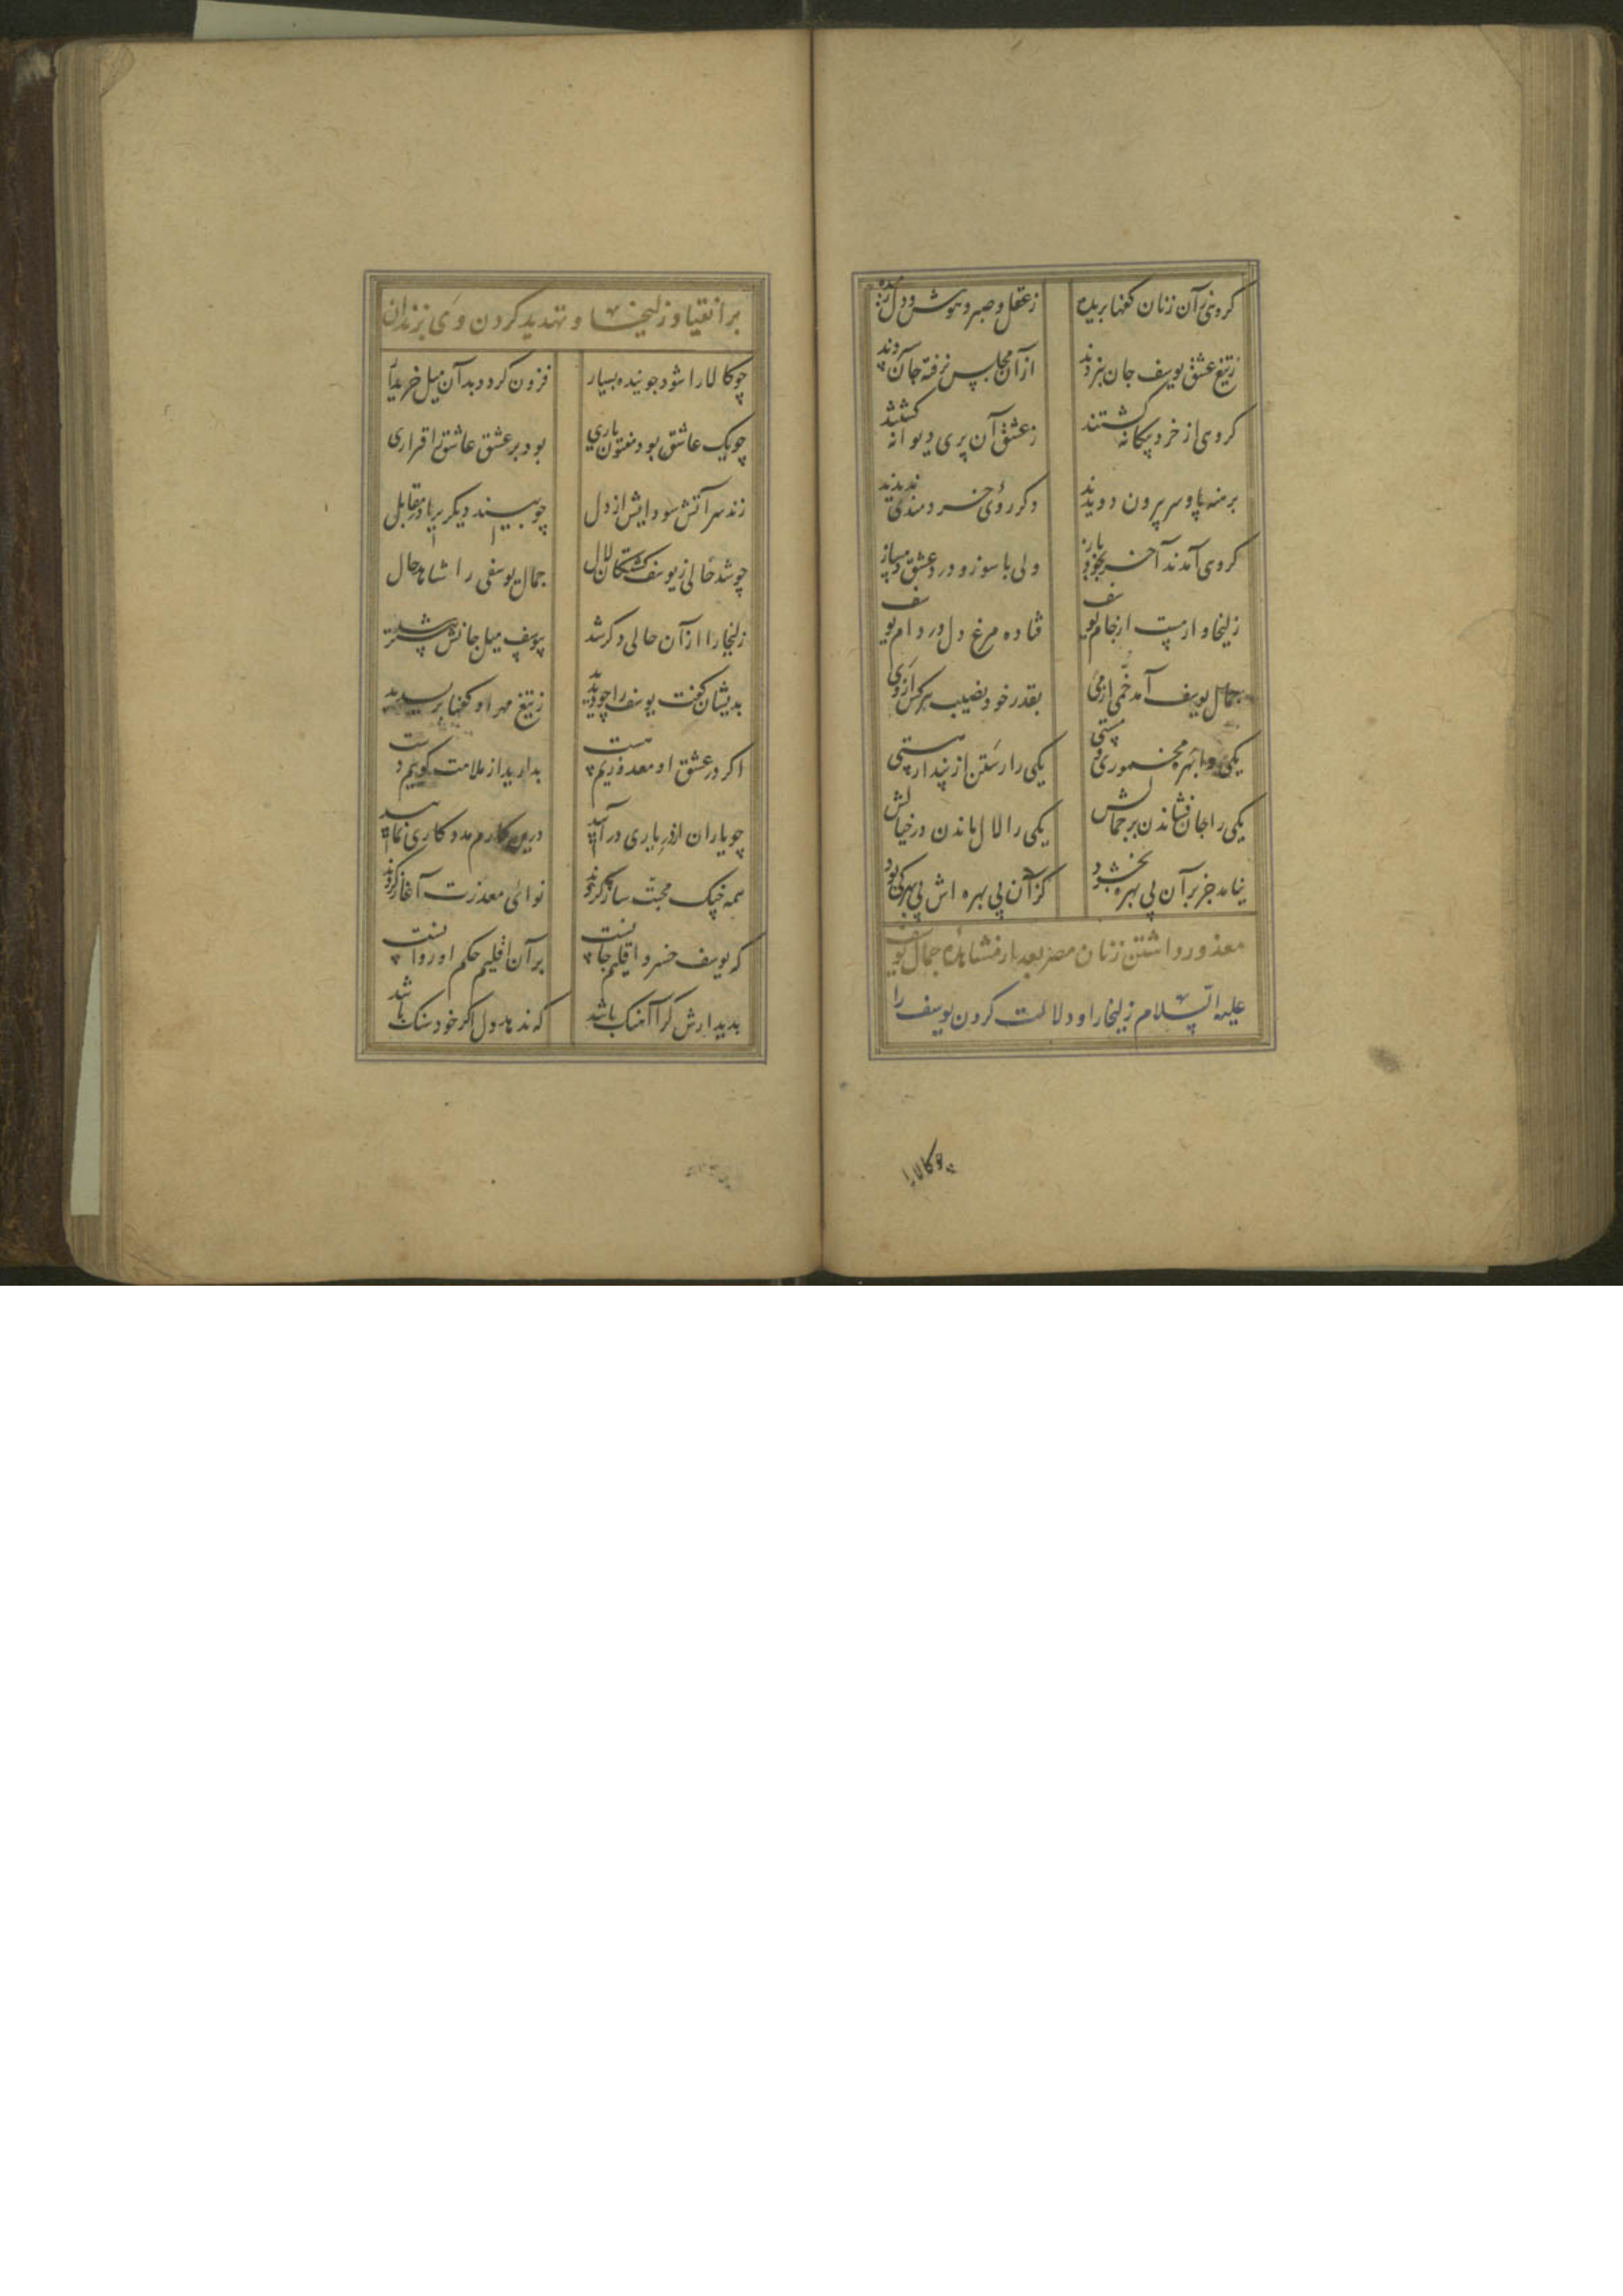 گروهی زآن زنان کفها بریده
ز عقل و صبر و هوش و دل رمیده
ز تیغ عشق یوسف جان نبردند
از آن مجلس نرفته جان سپردند
گروهی از خرد بیکانه کشتند
ز عشق آن پری دیوانه کشتند
برهنه پا و سر بیرون دویدند
دکر روی خردمندی ندیدند
کروهی آمدند آخر بخود باز
ولی با سوز و درد عشق دمساز
زلیخا وار مست از جام یوسف
فتاده مرغ دل در دام یوسف
جمال یوسف آمد خمی از می
بقدر خود نصیب هر کس از وی
یکی را بهره مخموری و مستی
یکی را رستن از پندار هستی
یکی را جان فشاندن بر جمالش
یکی را لال ماندن در خیالش
نیامد جز بر آن بی بهره بخشود
کز آن بی بهره اش بی بهرکی بود
معذور داشتن زنان مصر بعد از مشاهده جمال یوسف
علیه السلام زلیخا را و دلالت کردن یوسف را
چو کالا را
بر انقیاد زلیخا و تهدید کردن وی بزندان
چو کالا را شود جوینده بسیار
فزون کردد بدآن میل خریدار
چو یک عاشق بود مفتون یاری
بود بر عشق عاشق را قراری
زند سر آتش سودایش از دل
چو بیند دیکری را در مقابل
چو شد حالی ز یوسف کشتکان لال
جمال یوسفی را شاهد حال
زلیخا را از آن حالی دکر شد
بیوسف میل جانش بیشتر شد
بدیشان کفت یوسف را چو دیدید
ز تیغ مهر او کفها بریدید
اکر در عشق او معذوریم هست
بدارید از ملامت کوییم دست
چو یاران از در یاری در آیید
درین کارم مددکاری نمایید
همه چنک محبت ساز کردند
نوای معذرت آغاز کردند
که یوسف خسرو اقلیم جانست
بر آن اقلیم حکم او روانست
بدیدارش کرا آهنک باشد
که ندهد دل اکر خود سنک باشد